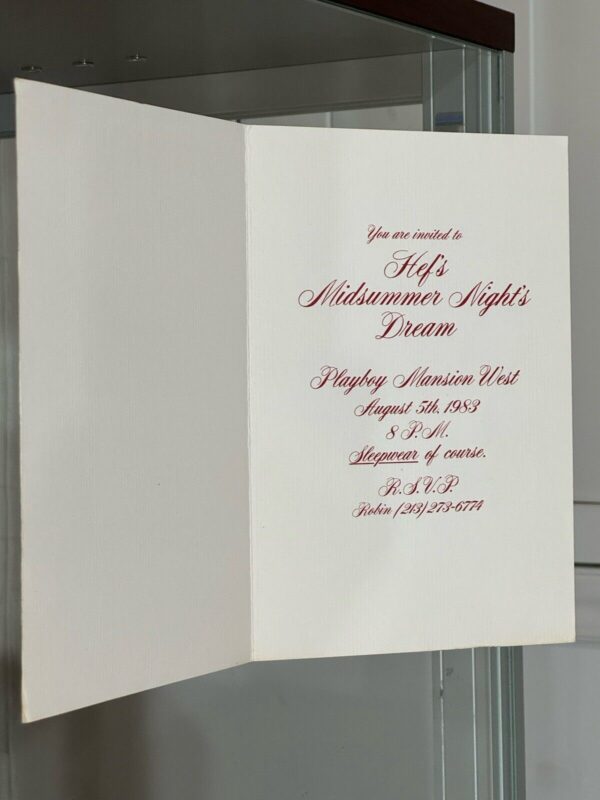 You are invited to
Hef's
Midsummer Night's
Dream
Playboy Mansion West
August 5th, 1983
8 P.M.
Sleepwear of course.
R.S.V.P.
Robin (213) 273-6774